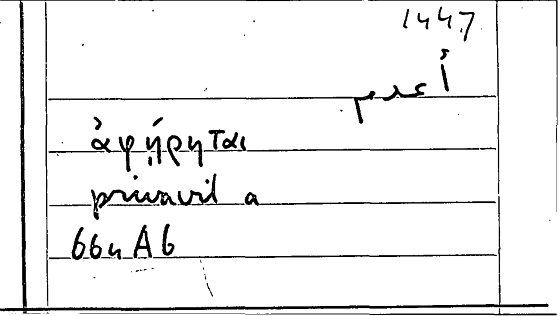 1447
أعدم
ἀφῄρηται
privavit a
664 A6